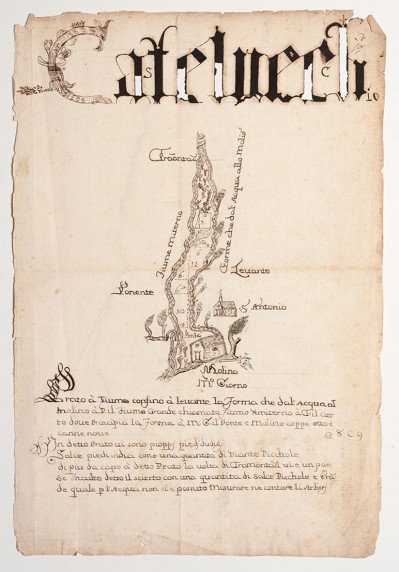 Castelvecchio
Tramontana
Fiume Miterno
Forma che dal' Acqua allo Molino
Levante
Ponente
S Antonio
Prato
Molino
M Giorno
Prato à Fiume confino à leuante la forma che dal' Acqua al
Molino à P il Fiume Grande chiamato Fiumo Amiterno à T il
doue Principia la forma à M G il Ponte e Molino coppe otto e
canne noue
C 8 C 9
In detto Prato ui sono pioppi piedi
Salce piedi cone una quantita di Piante Picchole
di piu da capo à detto Prato la uolta di Tramontana ui e un
se Inculto detto il scierto con una quantita di Salce Picchole e
de quale p l'Acqua non si e possuto Misurare ne contare li Arbori